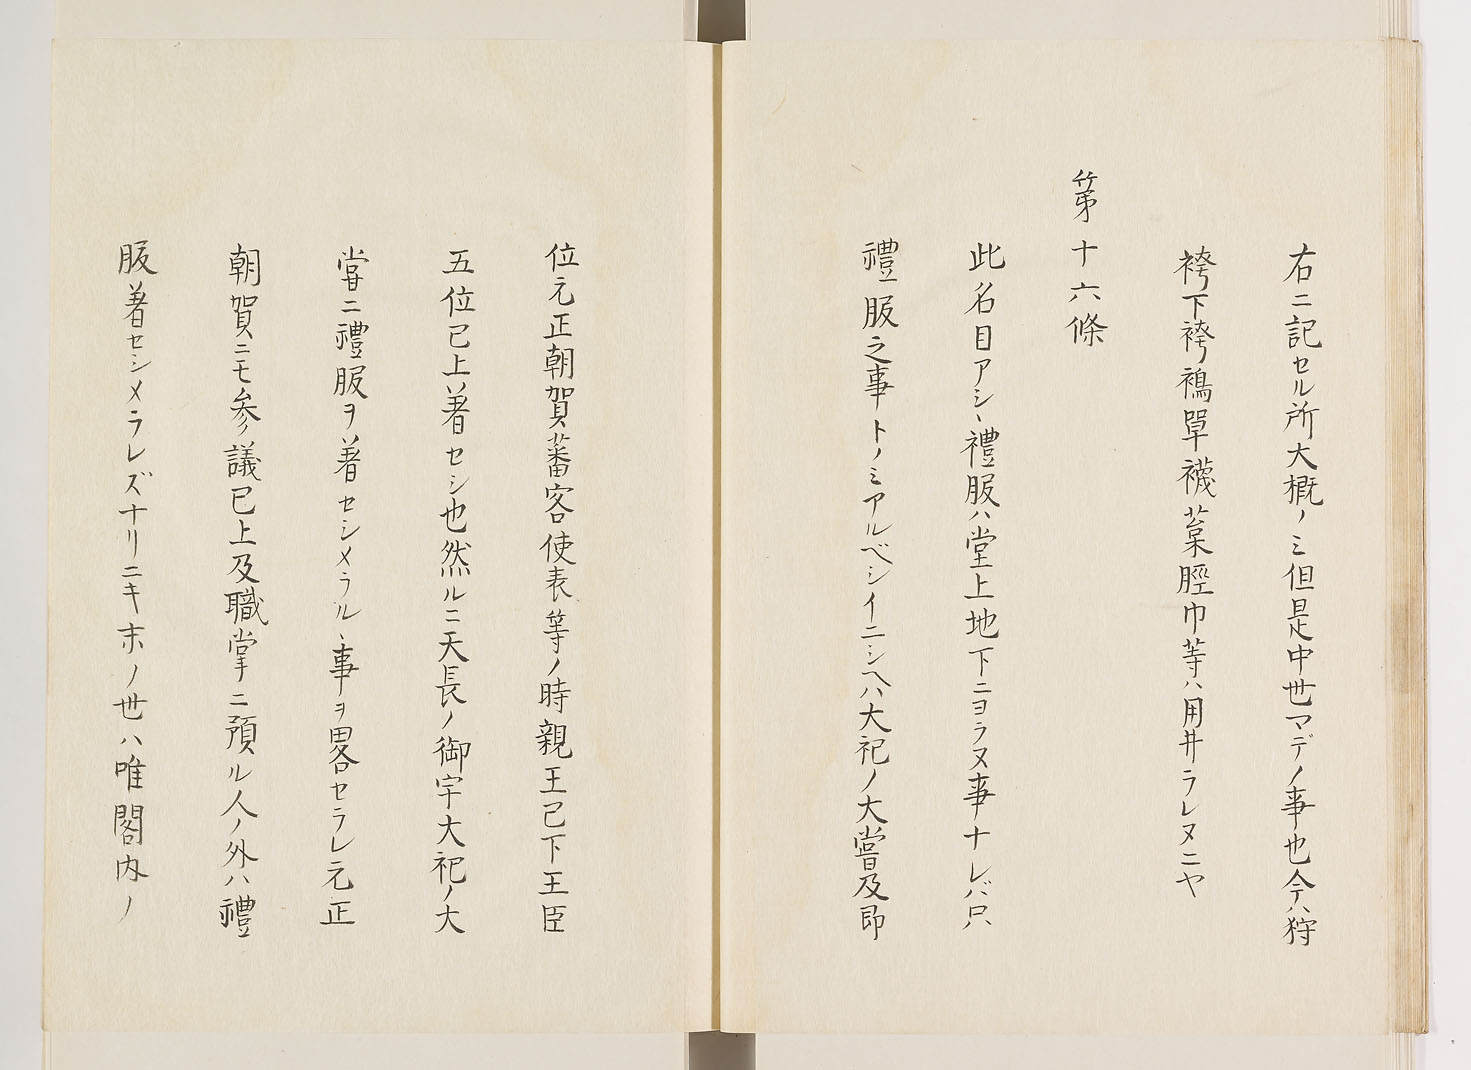 右ニ記セル所大概ノミ但是中世マデノ事也今ハ狩
袴下袴褐單襪藁脛巾等ハ用井ラレヌニヤ
第十六條
此名目アシヽ禮服ハ堂上地下ニヨラヌ事ナレバ只
禮服之事トノミアルベシイニシヘハ大祀ノ大嘗及即
位元正朝賀蕃客使表等ノ時親王已下王臣
五位已上著セシ也然ルニ天長ノ御宇大祀ノ大
嘗ニ禮服ヲ著セシメラルヽ事ヲ畧セラレ元正
朝賀ニモ參議已上及職掌ニ預ル人ノ外ハ禮
服著セシメラレズナリニキ末ノ世ハ唯閣内ノ